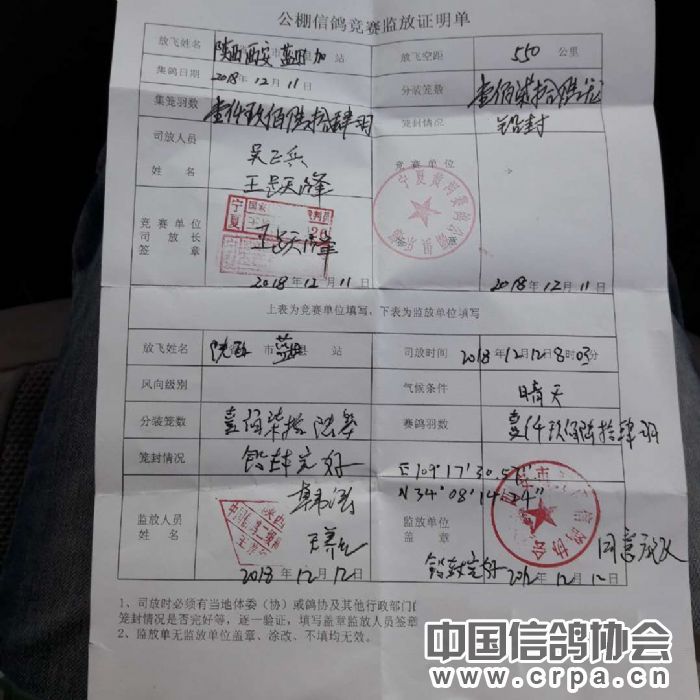 公棚信鸽竞赛监放证明单
放飞姓名 陕西西安 蓝田 站 放飞空距 550 公里
集鸽日期 2018.12.11 分装笼数 壹佰柒拾陆
集笼羽数 壹仟玖佰陆拾肆羽 笼封情况 铅封
司放人员
姓名
吴正兵
竞赛单位
竞赛单位
司放长
签章
宁夏
2018年12月11日 2018年12月11日
上表为竞赛单位填写、下表为监放单位填写
放飞姓名 陕西 市 蓝田 县 站 司放时间 2018年12月12日8时03分
风向级别 气候条件 晴天
分装笼数 壹佰柒拾陆笼 赛鸽羽数 壹仟玖佰陆拾肆羽
笼封情况 铅封完好 E109°17′30.57″
N34°08′14.24″
监放人员
姓名
监放单位
盖章
陕西
信鸽协会
铅封完好
2018年12月12日 年12月12日
1、司放时必须有当地体委（协）或鸽协及其他行政部门
笼封情况是否完好等，逐一验证，填写盖章监放人员签章
2、监放单无监放单位盖章、涂改、不填均无效。
中国信鸽协会
www.crpa.cn